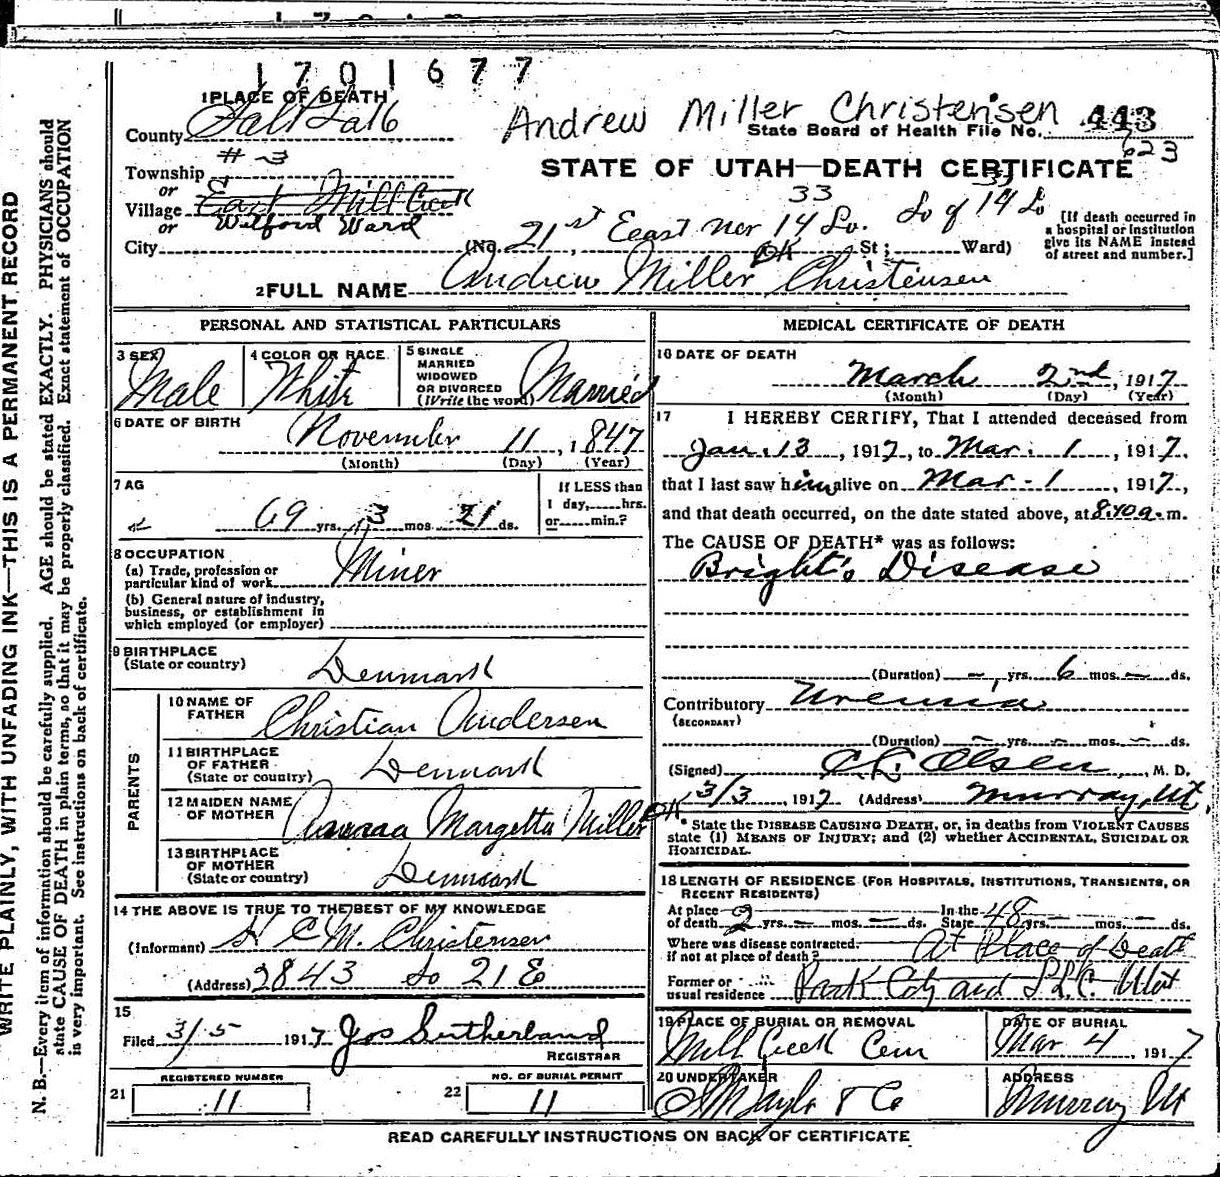 1701677
1 PLACE OF DEATH
Andrew Miller Christensen
County Salt Lake
State Board of Health File No. 443
623
# 3
Township
STATE OF UTAH—DEATH CERTIFICATE
or
Village East Mill Creek
Wilford Ward
or
33
City (No. 21st East nor 14 So. So of 14 So St; Ward)
[If death occurred in
a hospital or institution
give its NAME instead
of street and number.]
OK
2 FULL NAME Andrew Miller Christensen
PERSONAL AND STATISTICAL PARTICULARS
3 SEX Male
4 COLOR OR RACE White
5 SINGLE
MARRIED
WIDOWED
OR DIVORCED
(Write the word) Married
6 DATE OF BIRTH
November 11, 1847
(Month) (Day) (Year)
7 AG
69 yrs. 3 mos. 21 ds.
If LESS than
1 day, hrs.
or min.?
8 OCCUPATION
(a) Trade, profession or
particular kind of work Miner
(b) General nature of industry,
business, or establishment in
which employed (or employer)
9 BIRTHPLACE
(State or country) Denmark
PARENTS
10 NAME OF
FATHER Christian Andersen
11 BIRTHPLACE
OF FATHER
(State or country) Denmark
12 MAIDEN NAME
OF MOTHER Margetta Miller OK
13 BIRTHPLACE
OF MOTHER
(State or country) Denmark
14 THE ABOVE IS TRUE TO THE BEST OF MY KNOWLEDGE
(Informant) H C M. Christensen
(Address) 2843 So 21 E
15
Filed 3/5 1917 Jos Sutherland
REGISTRAR
REGISTERED NUMBER
21 11
NO. OF BURIAL PERMIT
22 11
MEDICAL CERTIFICATE OF DEATH
16 DATE OF DEATH
March 2nd, 1917
(Month) (Day) (Year)
17 I HEREBY CERTIFY, That I attended deceased from
Jan. 13, 1917, to Mar. 1, 1917,
that I last saw him alive on Mar - 1, 1917,
and that death occurred, on the date stated above, at 8:40 a.m.
The CAUSE OF DEATH* was as follows:
Bright's Disease
(Duration) – yrs. 6 mos. – ds.
Contributory Uremia
(SECONDARY)
(Duration) – yrs. – mos. – ds.
(Signed) C. L. Olsen, M. D.
3/3, 1917 (Address) Murray, Ut.
* State the DISEASE CAUSING DEATH, or, in deaths from VIOLENT CAUSES
state (1) MEANS OF INJURY; and (2) whether ACCIDENTAL, SUICIDAL OR
HOMICIDAL.
18 LENGTH OF RESIDENCE (FOR HOSPITALS, INSTITUTIONS, TRANSIENTS, OR
RECENT RESIDENTS)
At place
of death 2 yrs. – mos. – ds.
In the
State 48 yrs. – mos. – ds.
Where was disease contracted.
if not at place of death? At Place of Death
Former or
usual residence Park City and S.L.C. Utah
19 PLACE OF BURIAL OR REMOVAL
Mill Creek Cem
DATE OF BURIAL
Mar 4, 1917
20 UNDERTAKER
& Co
ADDRESS
Murray Ut
READ CAREFULLY INSTRUCTIONS ON BACK OF CERTIFICATE
WRITE PLAINLY, WITH UNFADING INK—THIS IS A PERMANENT RECORD
N. B.—Every item of information should be carefully supplied. AGE should be stated EXACTLY. PHYSICIANS should
state CAUSE OF DEATH in plain terms, so that it may be properly classified. Exact statement of OCCUPATION
is very important. See instructions on back of certificate.